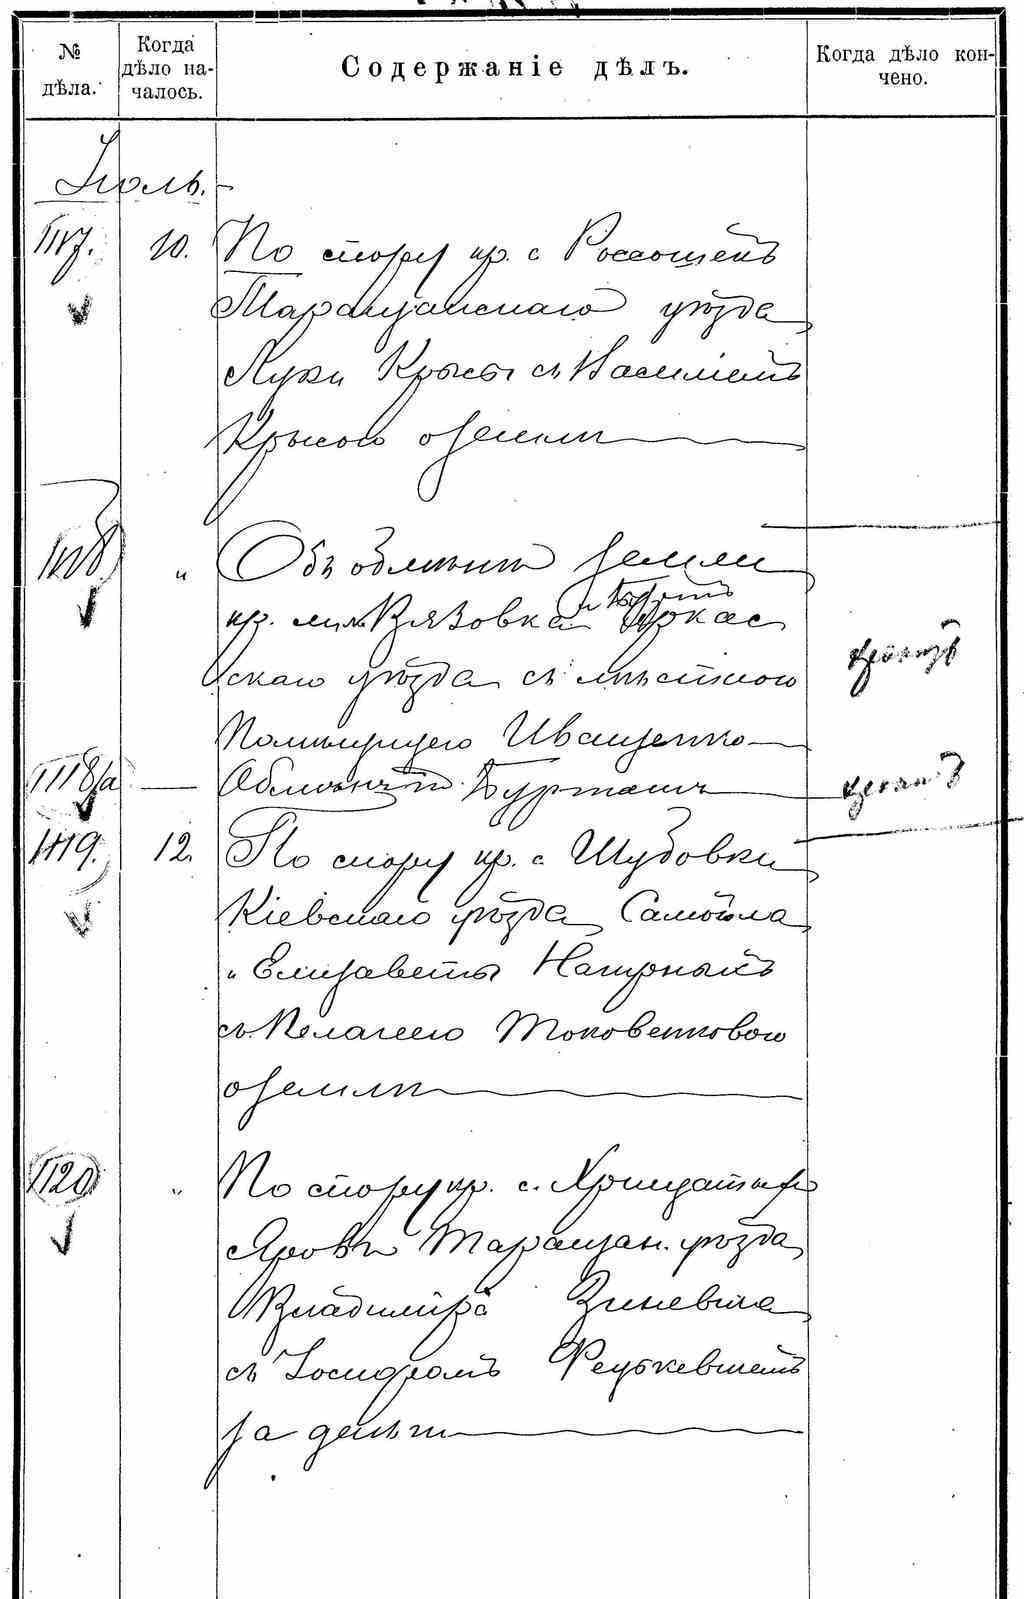 № дѣла.
Когда дѣло началось.
Содержаніе дѣлъ.
Когда дѣло кончено.
Іюль.
1117. 10. По спору кр. с Россошекъ
Таращанскаго уѣзда
Луки Крысы съ Василіемъ
Крысою о землѣ
1118. " Объ обмѣнѣ земли
кр. м. Вязовка Черкас
скаго уѣзда съ мѣстною
Помѣщицею Иващенко
1118/а Обмѣнъ
1119. 12. По спору кр. с Шубовки
Кіевскаго уѣзда Самойла
и Елизаветы Нагорныхъ
съ Пелагеею Токовенковою
о землѣ
1120 " По спору кр. с. Хрещатый
Яровъ Таращан. уѣзда
Владиміра Зиневича
съ Іосифомъ
за деньги